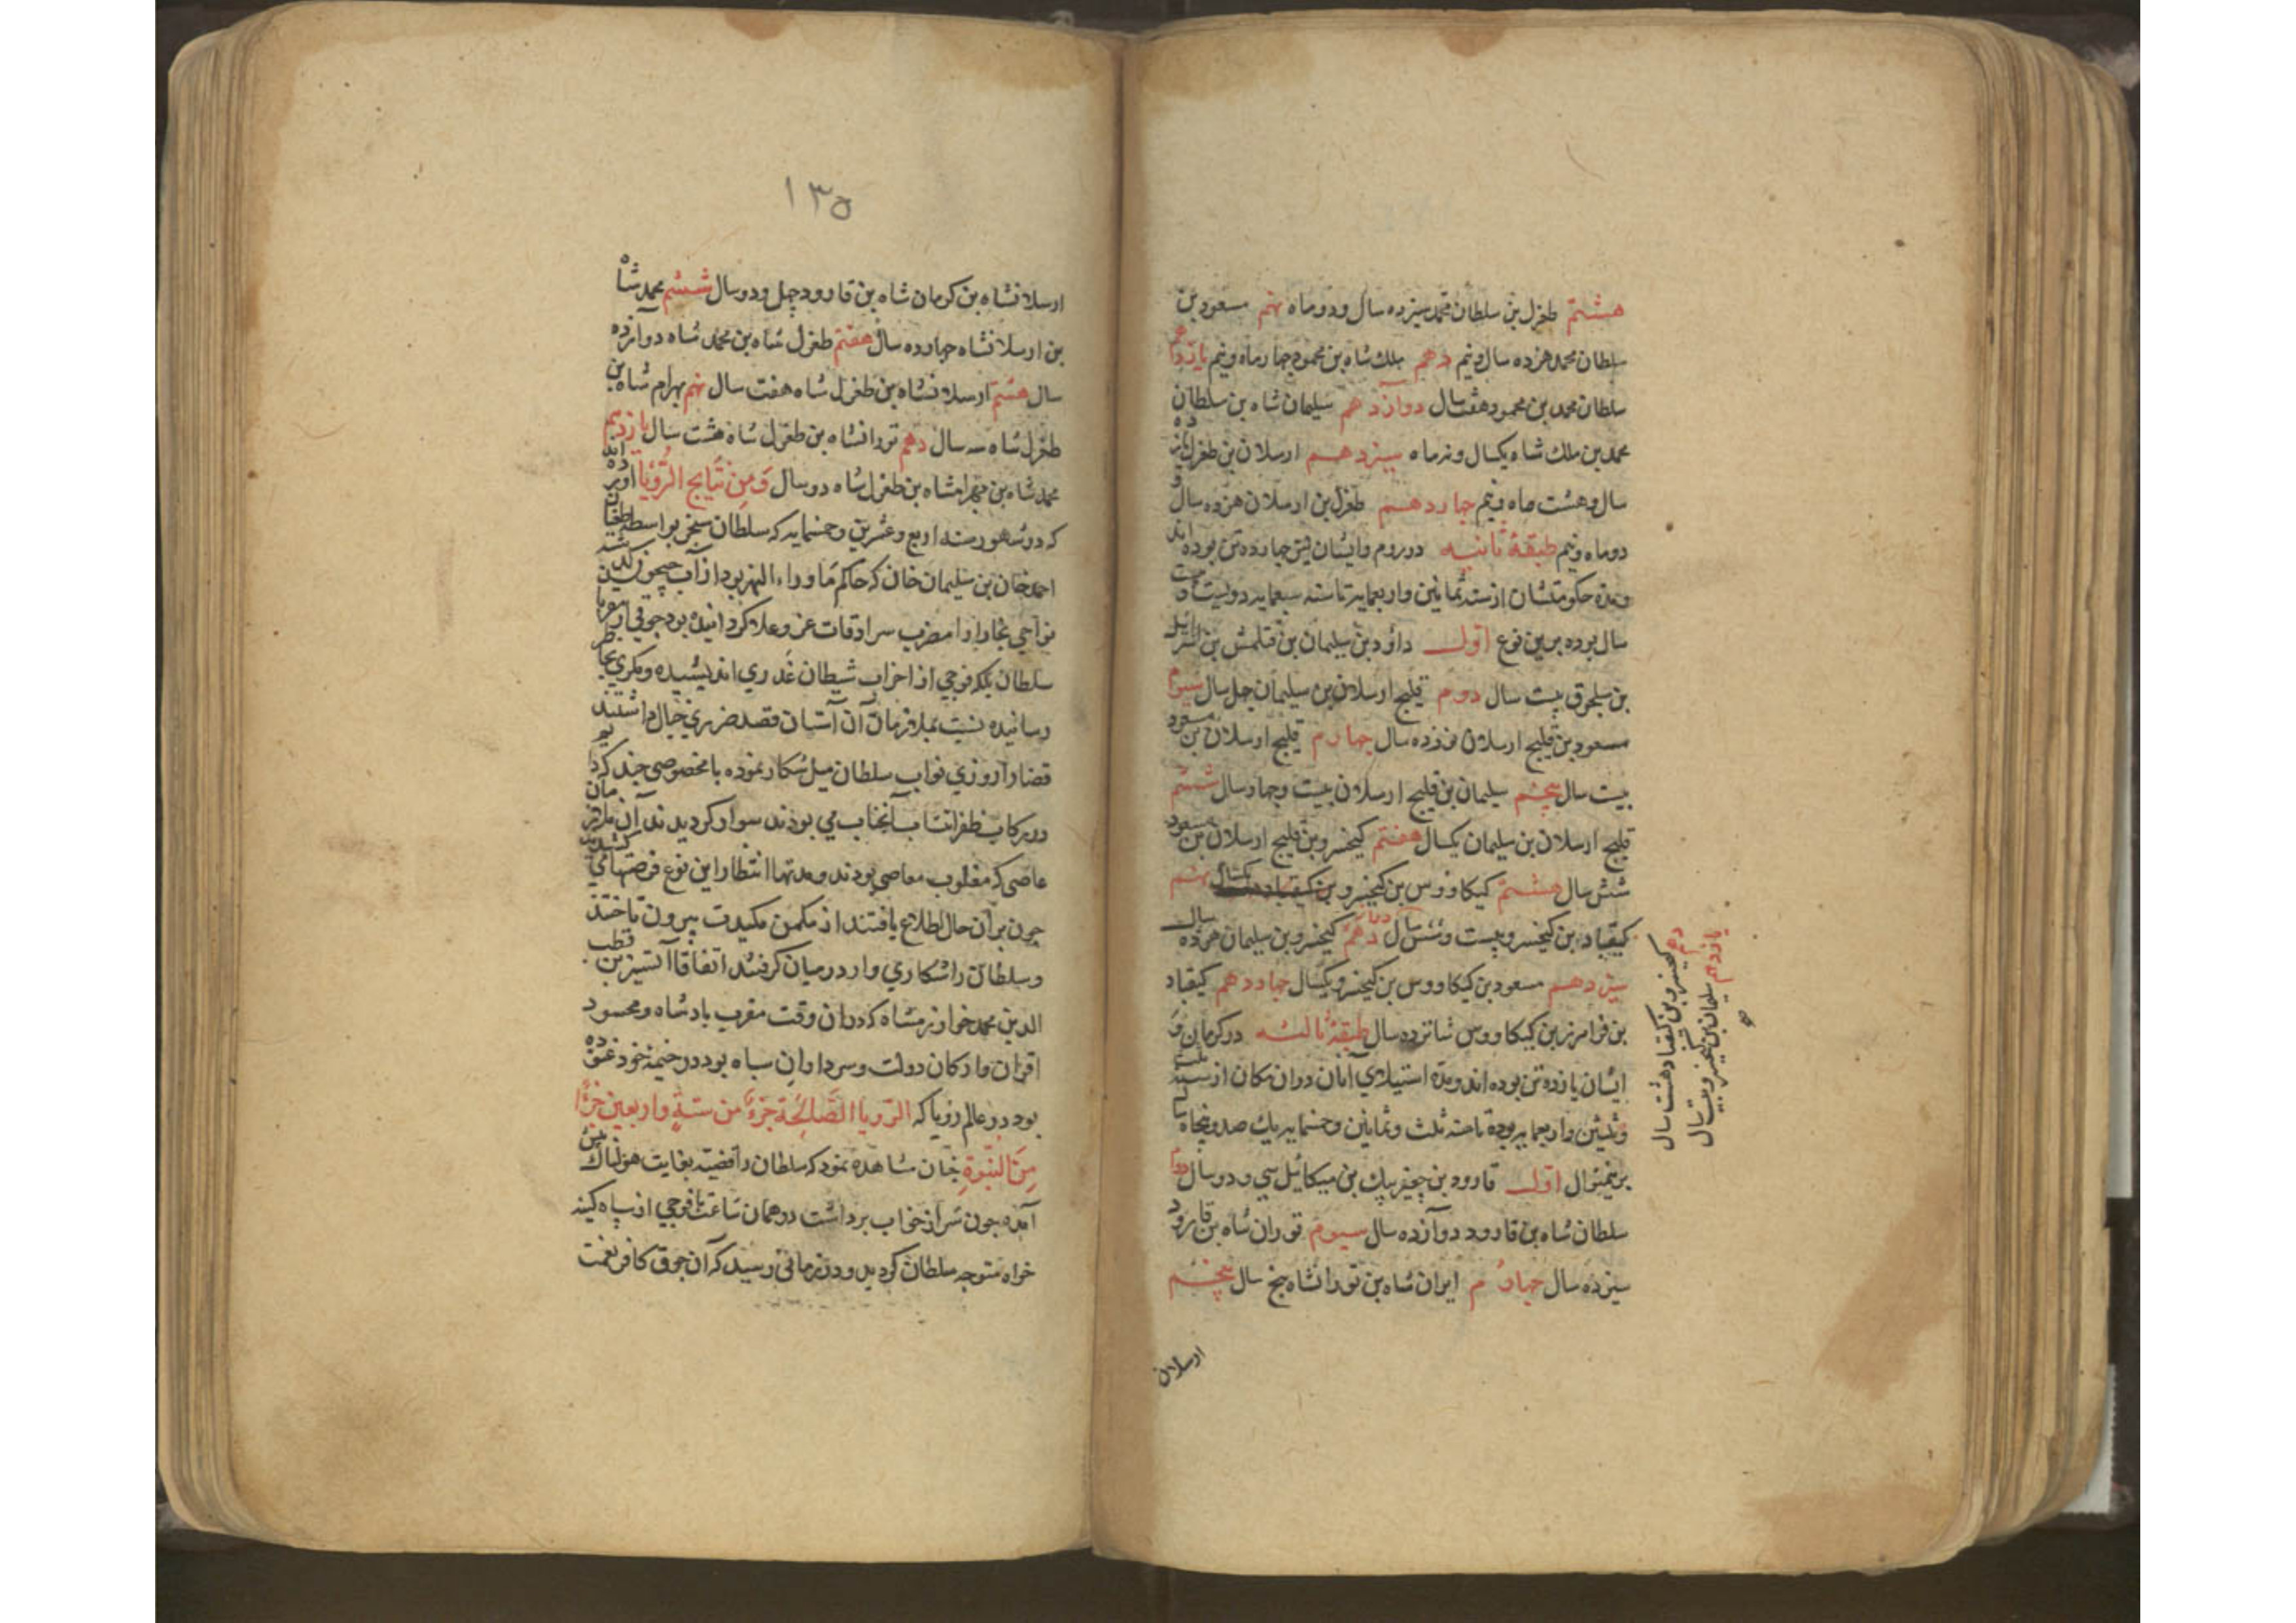 هشتم طغرل بن سلطان محمد سیزده سال و دو ماه نهم مسعود بن
سلطان محمد هژده سال و نیم دهم ملک شاه بن محمود چهار ماه و نیم یازدهم
سلطان محمد بن محمود هفت سال دوازدهم سلیمان شاه بن سلطان
محمد بن ملک شاه یکسال و نه ماه سیزدهم ارسلان بن طغرل پانزده
سال و هشت ماه و نیم چهاردهم طغرل بن ارسلان هژده سال و
دو ماه و نیم طبقهٔ ثانیه در روم و ایشان نیز چهارده تن بوده اند
و مدة حکومتشان از سنه ثمانین و اربعمایه تا سنه سبعمایه دویست و بیست
سال بوده برین نوع اول داؤد بن سلیمان بن قتلمش بن اسرائیل
بن سلجوق بیست سال دوم قلیج ارسلان بن سلیمان چهل سال سیوم
مسعود بن قلیج ارسلان نوزده سال چهارم قلیج ارسلان بن مسعود
بیست سال پنجم سلیمان بن قلیج ارسلان بیست و چهار سال ششم
قلیج ارسلان بن سلیمان یکسال هفتم کیخسرو بن قلیج ارسلان بن مسعود
شش سال هشتم کیکاووس بن کیخسرو یکسال نهم
کیقباد بن کیخسرو بیست و شش سال دهم کیخسرو بن سلیمان هژده سال
سیزدهم مسعود بن کیکاووس بن کیخسرو یکسال چهاردهم کیقباد
بن فرامرز بن کیکاووس شانزده سال طبقهٔ ثالثه در کرمان و
ایشان یازده تن بوده اند و مدة استیلای آنان دران مکان از سنه ثلث
و ثلثین و اربعمایه بوده تا سنه ثلث و ثمانین و خمسمایه یک صد و پنجاه سال
برینمنوال اول قاورد بن چغربیک بن میکائیل سی و دو سال دوم
سلطان شاه بن قاورد دوازده سال سیوم توران شاه بن قاورد
سیزده سال چهارم ایران شاه بن تورانشاه پنج سال پنجم
ارسلان
دهم کیخسرو بن کیقباد هشت سال
یازدهم سلیمان بن کیخسرو بیست سال
۱۳۵
ارسلانشاه بن کرمان شاه بن قاورد چهل و دو سال ششم محمد شاه
بن ارسلانشاه چهارده سال هفتم طغرل شاه بن محمد شاه دوازده
سال هشتم ارسلانشاه بن طغرل شاه هفت سال نهم بهرام شاه بن
طغرل شاه سه سال دهم تورانشاه بن طغرل شاه هشت سال یازدهم
محمد شاه بن بهرامشاه بن طغرل شاه دو سال وَمِن نَتایج الرُّؤیا آورده اند
که در شهور سنه اربع و عشرین و خمسمایه که سلطان سنجر بواسطه طغیان
احمد خان بن سلیمان خان که حاکم ماوراء النهر بود از آب جیحون گذشته
نواحی بخارا را مضرب سرادقات عز و علا گردانیده بود
سلطان یکه فوجی از احزاب شیطان غدری اندیشیده و مکری بخاطر
رسانیده نسبت بملازمان آن آستان قصد ضرری خیال داشتند
قضا را روزی نواب سلطان میل شکار نموده با مخصوصی چند که
در رکاب ظفر انتساب آنجناب می بودند سوار گردیدند آن ملازمان
عاصی که مغلوب معاصی بودند و مدتها انتظار این نوع فرصتها می کشیدند
چون بر آن حال اطلاع یافتند از مکمن مکیدت بیرون تاختند
و سلطان را شکاری وار در میان گرفتند اتفاقا آتسز بن قطب
الدین محمد خوارزمشاه که دران وقت مقرب پادشاه و محسود
اقران و ارکان دولت و سرداران سپاه بود در خیمهٔ خود غنوده
بود در عالم رؤیا که الرّؤیا الصّالِحَة جزءٌ من ستةٍ و اربعین جزًا
مِنَ النّبُوةِ چنان مشاهده نمود که سلطان را قضیه بغایت هولناک پیش
آمده چون سر از خواب برداشت در همان ساعت با فوجی از سپاه کینه
خواه متوجه سلطان گردید و در زمانی رسید که آن جوق کافر نعمت